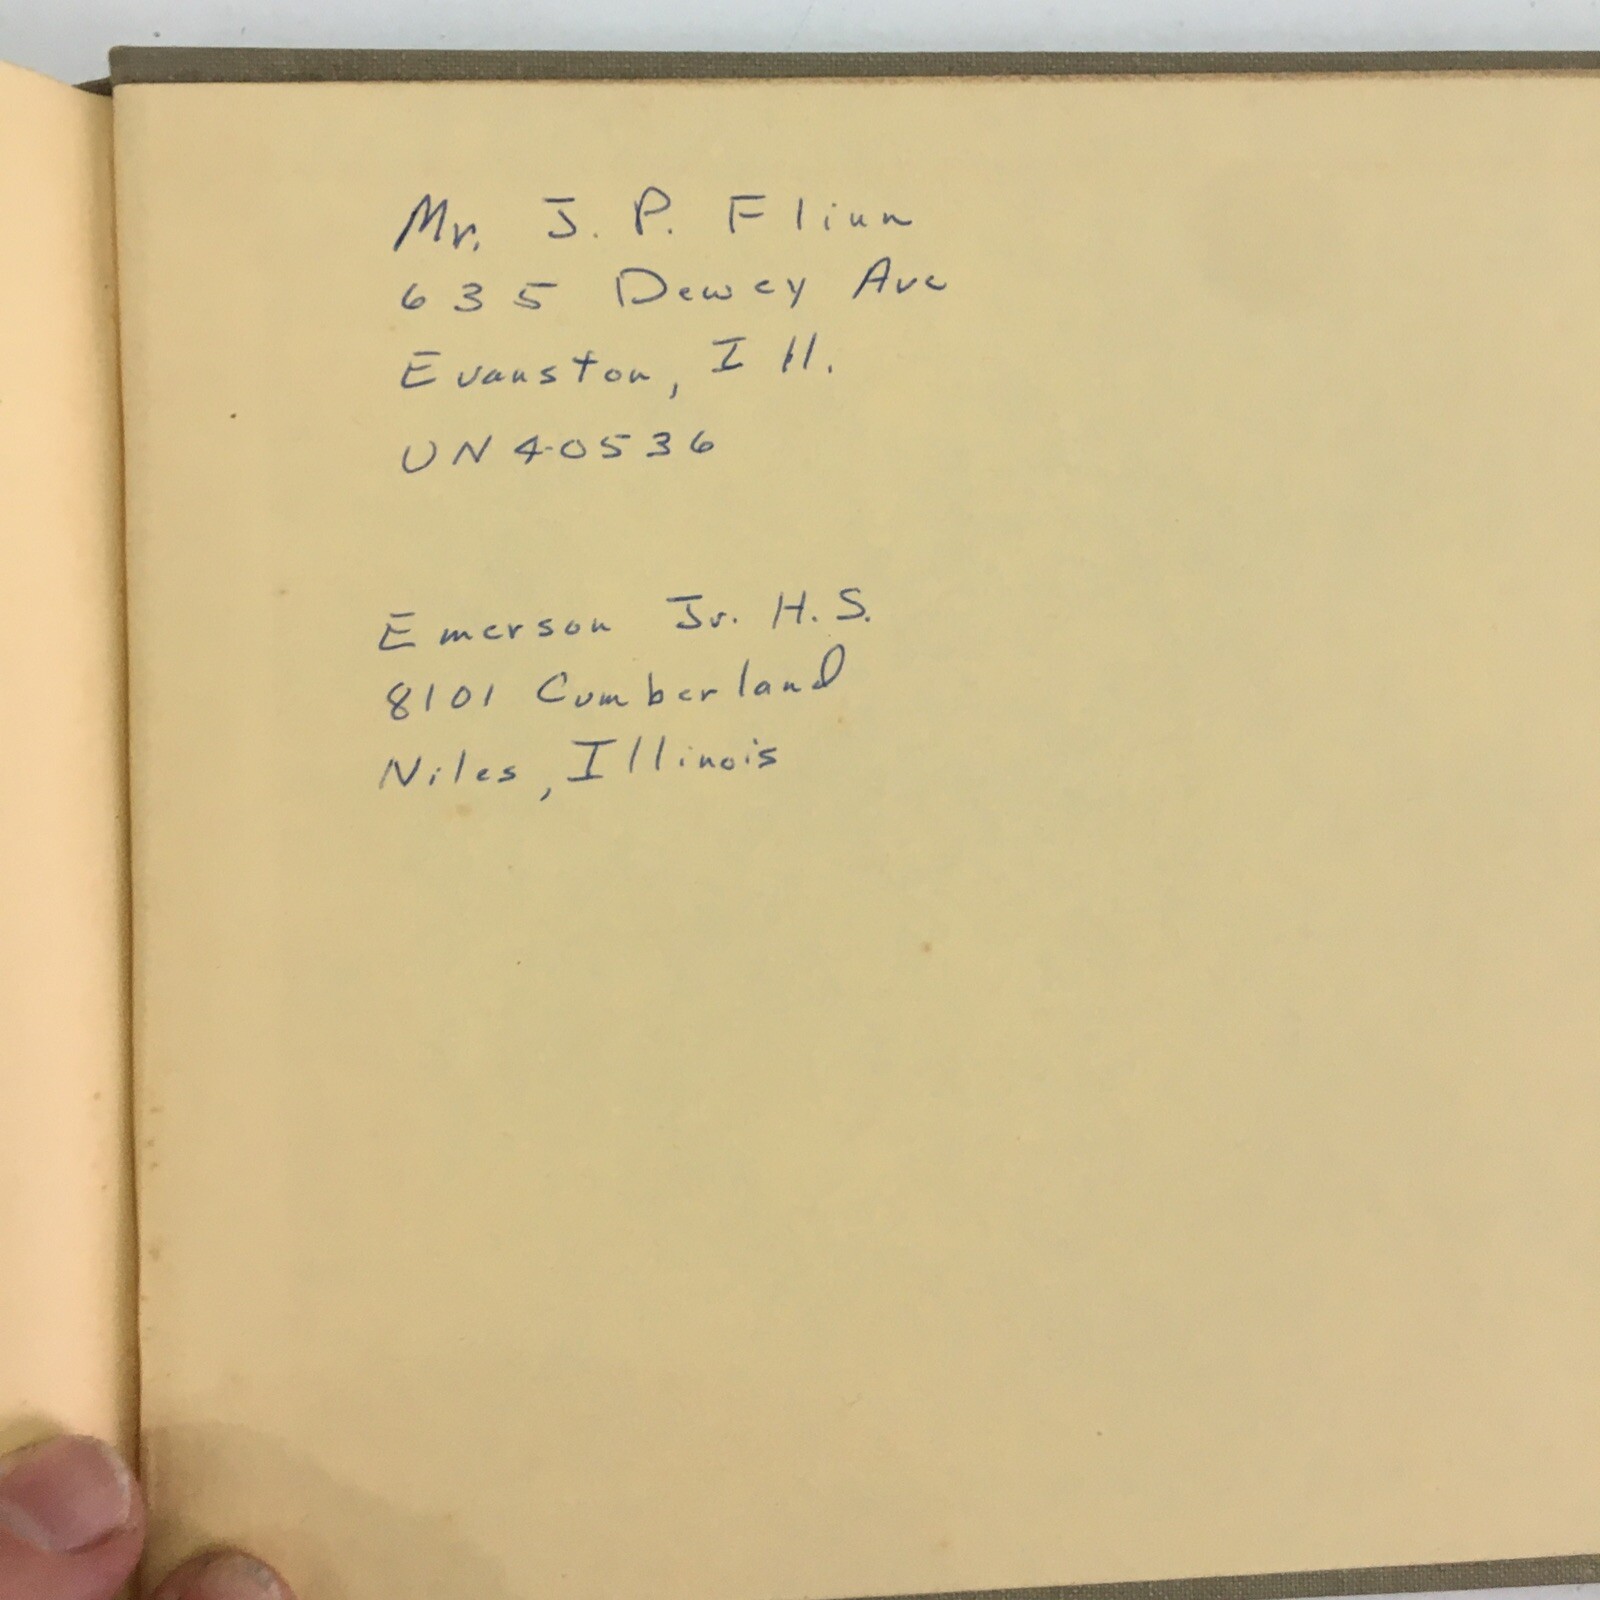 Mr. J. P. Flinn
635 Dewey Ave
Evanston, Ill.
UN4-0536
Emerson Jr. H.S.
8101 Cumberland
Niles, Illinois